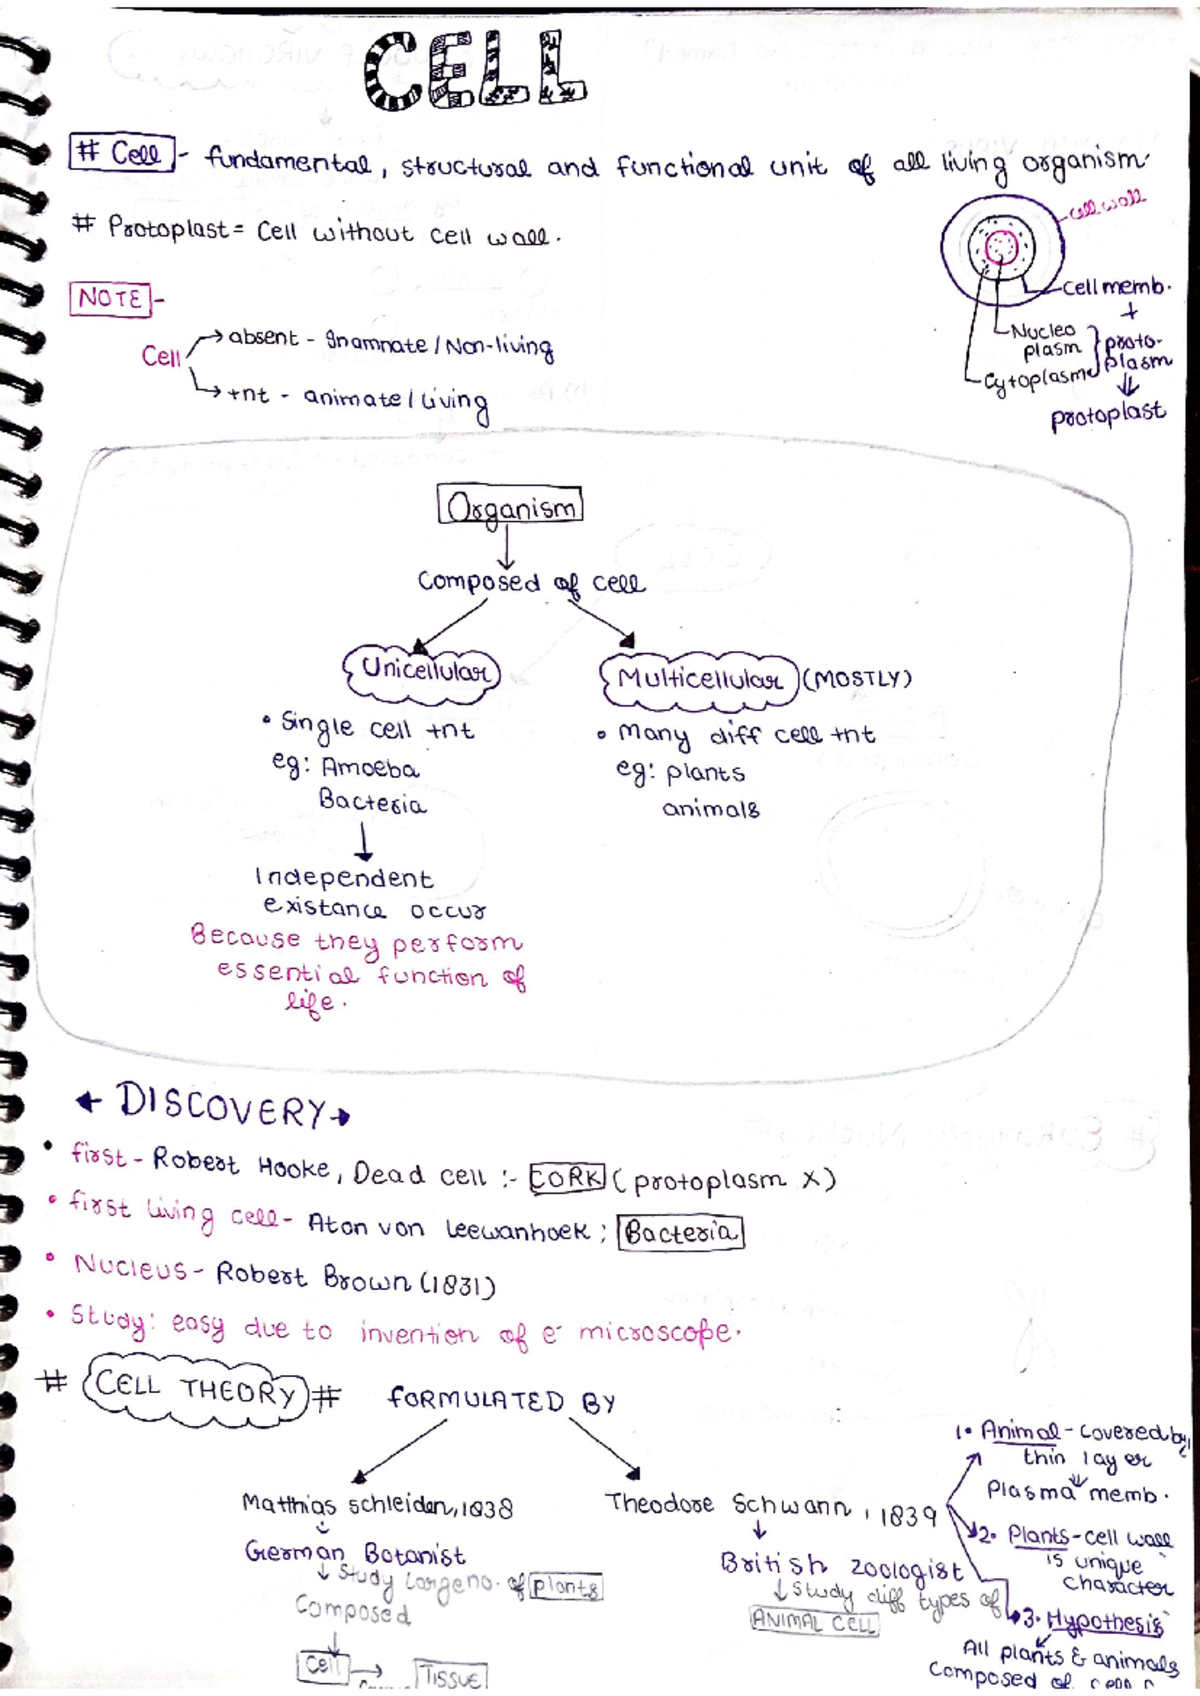 CELL
# Cell - fundamental, structural and functional unit of all living organism.
# Protoplast = Cell without cell wall.
cell wall
Cell memb.
+
Nucleo
plasm
Cytoplasm
proto-
plasm
protoplast
NOTE -
Cell
absent - Inamnate / Non-living
+nt - animate / Living
Organism
Composed of cell
Unicellular
• Single cell +nt
eg: Amoeba
Bacteria
Independent
existance occur
Because they perform
essential function of
life.
Multicellular (MOSTLY)
• Many diff cell +nt
eg: plants
animals
DISCOVERY
• first - Robert Hooke, Dead cell :- CORK (protoplasm X)
• first living cell - Aton von Leewanhoek; Bacteria
• Nucleus - Robert Brown (1831)
• Study: easy due to invention of e⁻ microscope.
# CELL THEORY # FORMULATED BY
Matthias schleiden, 1838
German Botanist
Study large no. of plants
Composed
Cell
TISSUE
Theodore Schwann, 1839
British zoologist
Study diff types of
ANIMAL CELL
1. Animal - covered by
thin layer
Plasma memb.
2. Plants - cell wall
is unique
character
3. Hypothesis
All plants & animals
composed of cell